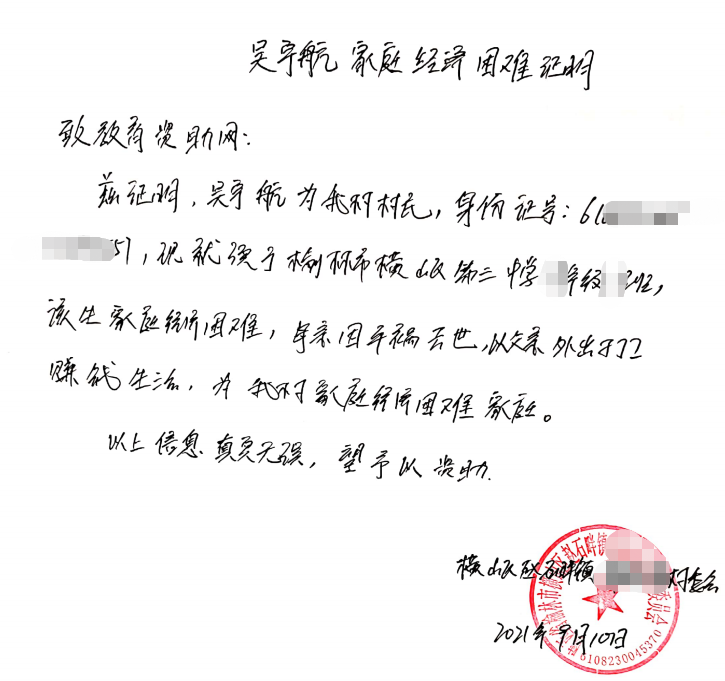 吴宇航家庭经济困难证明
致教育资助网：
兹证明，吴宇航为我村村民，身份证号：61
51，现就读于榆林市横山区第三中学 年级 班，
该生家庭经济困难，母亲因车祸去世，以父亲外出打工
赚钱生活，为我村家庭经济困难家庭。
以上信息真实无误，望予以资助.
横山区赵石畔镇 村委会
2021年9月10日
榆林市横山区赵石畔镇 委员会
6108230045370